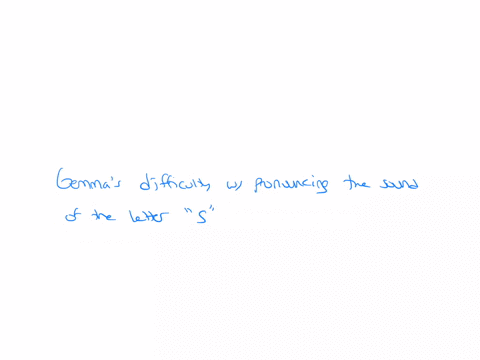 Gemma's difficulty w/ pronouncing the sound
of the letter "S"